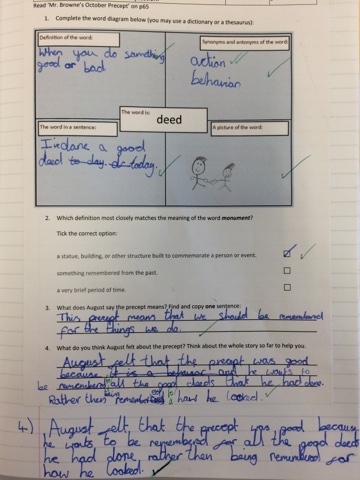 Read 'Mr. Browne's October Precept' on p65
1. Complete the word diagram below (you may use a dictionary or a thesaurus):
Definition of the word:
When you do something
good or bad
Synonyms and antonyms of the word:
action
behavior
The word is:
deed
The word in a sentence:
done a good
deed to day. today.
A picture of the word:
2. Which definition most closely matches the meaning of the word monument?
Tick the correct option:
a statue, building, or other structure built to commemorate a person or event.
something remembered from the past.
a very brief period of time.
3. What does August say the precept means? Find and copy one sentence:
This precept means that we should be remembered
for the things we do.
4. What do you think August felt about the precept? Think about the whole story so far to help you.
August felt that the precept was good
because it is a behavior and he wants to
be remembered all the good deeds that he had done.
Rather then being remembered for how he looked.
4.) August felt, that the precept was good because
he wants to be remembered for all the good deeds
he had done, rather then being remembered for
how he looked.